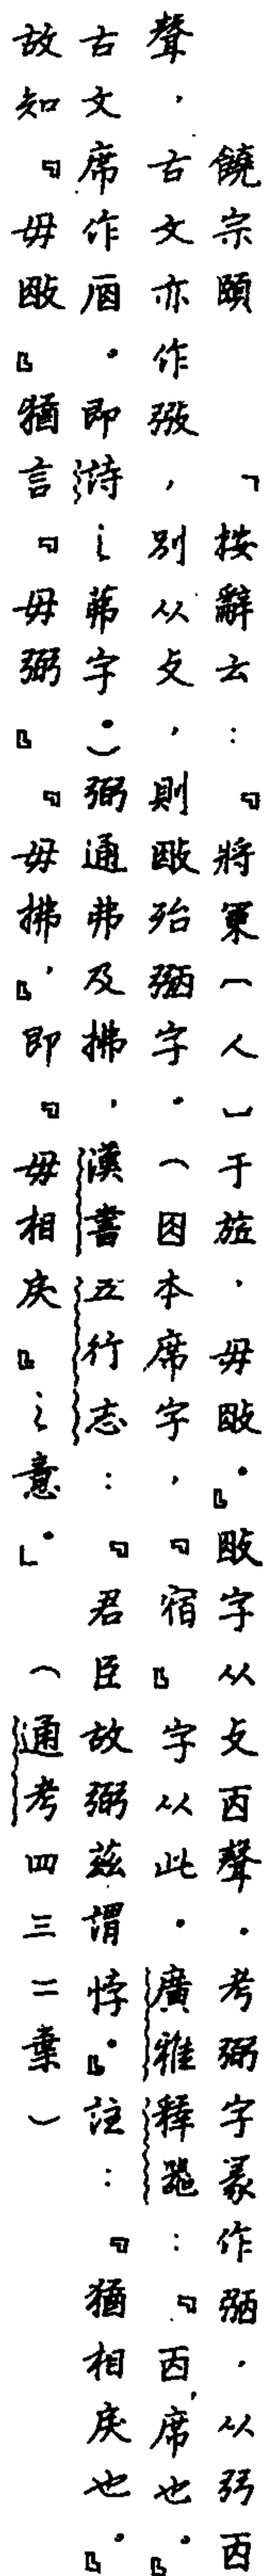 饒宗頤　「按辭云：『將軍（人）于旅，毋㪏。』㪏字从攴㐁聲。考弼字篆作弻，从弜㐁
聲，古文亦作㢸，別从攴，則㪏殆弻字。（因本席字，『宿』字从此。廣雅釋器：『㐁，席也。』
古文席作𠩜。即詩之茀字。）弼通弗及拂，漢書五行志：『君臣故弼茲謂悖。』註：『猶相戾也。』
故知『毋㪏』猶言『毋弼』『毋拂』，即『毋相戾』之意。」（通考四三二葉）